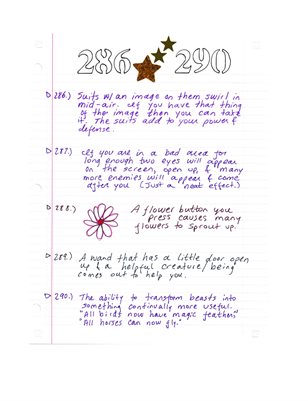 286 290
286.) Suits w/ an image on them swirl in
mid-air. If you have that thing
of the image then you can take
it. The suits add to your power &
defense.
287.) If you are in a bad area for
long enough two eyes will appear
on the screen, open up, & many
more enemies will appear & come
after you (Just a "neat effect.)
288.) A flower button you
press causes many
flowers to sprout up.
289.) A wand that has a little door open
up & a helpful creature/being
comes out to help you.
290.) The ability to transform beasts into
something continually more useful.
"All birds now have magic feathers"
"All horses can now fly."